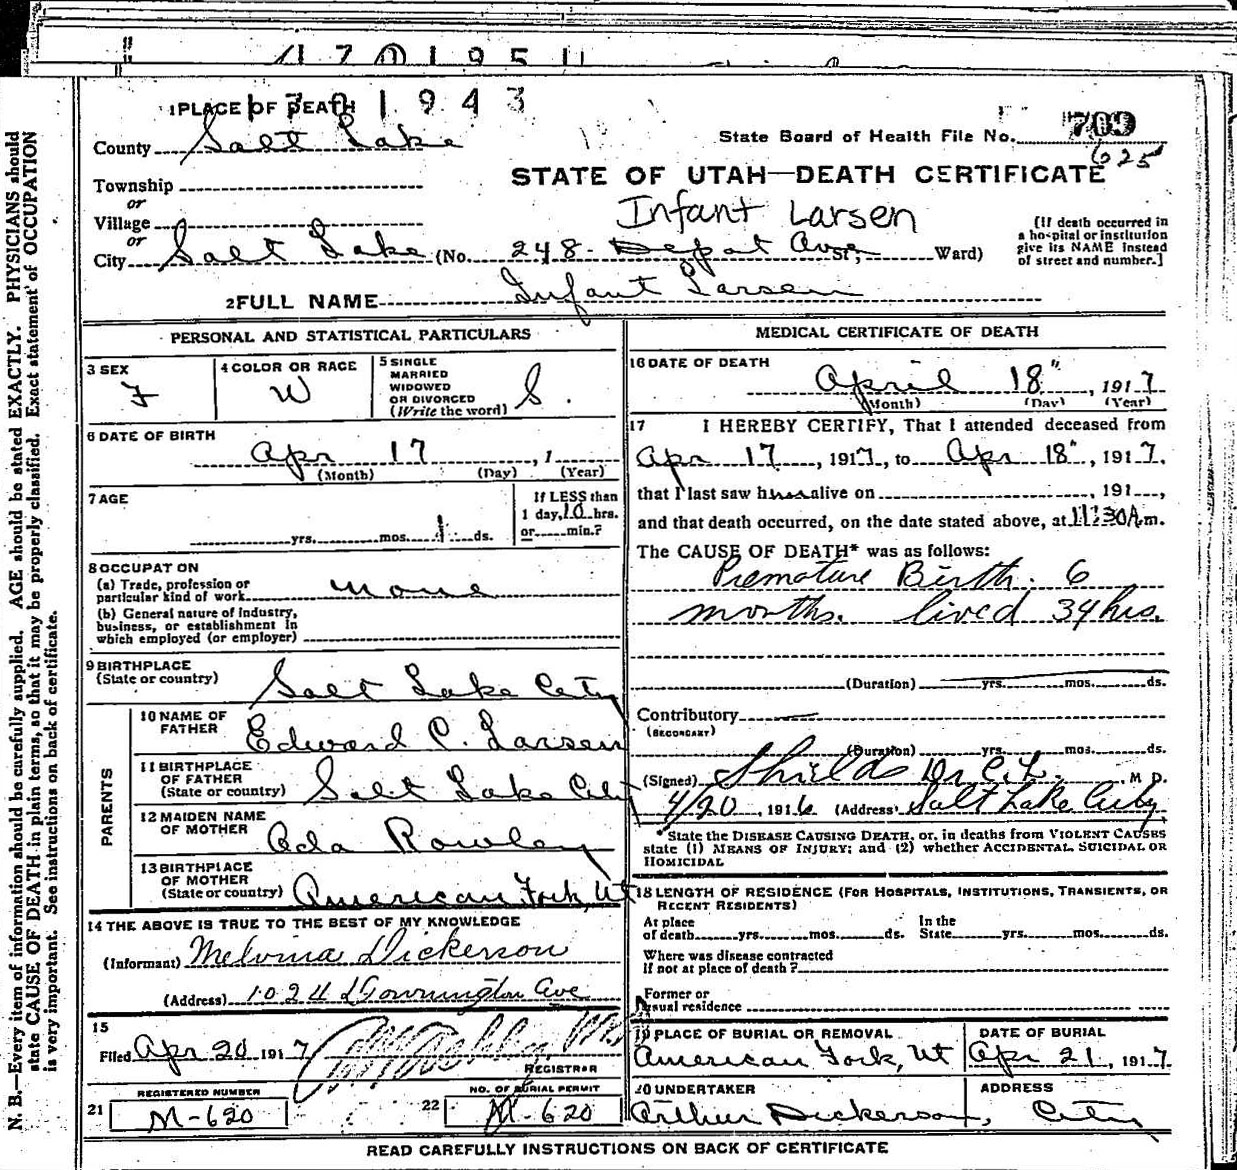 1701951
1701943
1 PLACE OF DEATH
County Salt Lake
State Board of Health File No. 709
625
STATE OF UTAH—DEATH CERTIFICATE
Township
or
Village
or
City Salt Lake (No. 248 Depot Ave St; Ward)
Infant Larsen
[If death occurred in
a hospital or institution
give its NAME instead
of street and number.]
2 FULL NAME Infant Larsen
PERSONAL AND STATISTICAL PARTICULARS
3 SEX
F
4 COLOR OR RACE
W
5 SINGLE
MARRIED
WIDOWED
OR DIVORCED
(Write the word) S.
6 DATE OF BIRTH
Apr 17, 1
(Month) (Day) (Year)
7 AGE
yrs. mos. 1 ds.
If LESS than
1 day, 10 hrs.
or min.?
8 OCCUPATION
(a) Trade, profession or
particular kind of work none
(b) General nature of industry,
business, or establishment in
which employed (or employer)
9 BIRTHPLACE
(State or country) Salt Lake City
PARENTS
10 NAME OF
FATHER Edward C. Larsen
11 BIRTHPLACE
OF FATHER
(State or country) Salt Lake City
12 MAIDEN NAME
OF MOTHER Ada Rowley
13 BIRTHPLACE
OF MOTHER
(State or country) American Fork, Ut
14 THE ABOVE IS TRUE TO THE BEST OF MY KNOWLEDGE
(Informant) Melvina Dickerson
(Address) 1024 Lowrington Ave
15
Filed Apr 20 1917
REGISTRAR
REGISTERED NUMBER
21 M-620
NO. OF BURIAL PERMIT
22 M-620
MEDICAL CERTIFICATE OF DEATH
16 DATE OF DEATH
April 18", 1917
(Month) (Day) (Year)
17 I HEREBY CERTIFY, That I attended deceased from
Apr 17, 1917, to Apr 18", 1917.
that I last saw h alive on , 191 ,
and that death occurred, on the date stated above, at 11:30A.m.
The CAUSE OF DEATH* was as follows:
Premature Birth. 6
months. lived 34 hrs.
(Duration) yrs. mos. ds.
Contributory
(SECONDARY)
(Duration) yrs. mos. ds.
(Signed) Shields Dr C. L. M D.
4/20, 1916 (Address) Salt Lake City
*State the DISEASE CAUSING DEATH, or, in deaths from VIOLENT CAUSES
state (1) MEANS OF INJURY; and (2) whether ACCIDENTAL, SUICIDAL OR
HOMICIDAL
18 LENGTH OF RESIDENCE (FOR HOSPITALS, INSTITUTIONS, TRANSIENTS, OR
RECENT RESIDENTS)
At place
of death yrs. mos. ds.
In the
State yrs. mos. ds.
Where was disease contracted
If not at place of death?
Former or
usual residence
19 PLACE OF BURIAL OR REMOVAL
American Fork, Ut
DATE OF BURIAL
Apr 21, 1917
20 UNDERTAKER
Arthur Dickerson,
ADDRESS
City
READ CAREFULLY INSTRUCTIONS ON BACK OF CERTIFICATE
N. B.—Every item of information should be carefully supplied. AGE should be stated EXACTLY. PHYSICIANS should
state CAUSE OF DEATH in plain terms, so that it may be properly classified. Exact statement of OCCUPATION
is very important. See instructions on back of certificate.